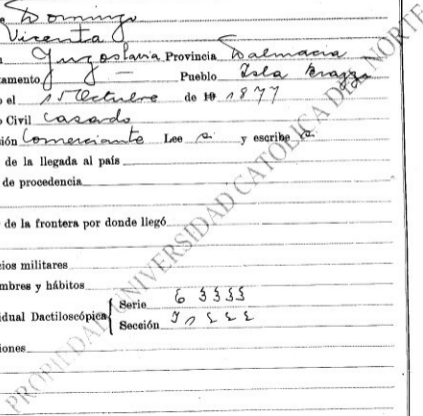 Domingo
Vicenta
Yugoslavia Provincia Dalmacia
tamento — Pueblo Isla Brazza
o el 15 Octubre de 19 1877
o Civil Casado
ión Comerciante Lee si y escribe si
de la llegada al país
de procedencia
de la frontera por donde llegó
cios militares
mbres y hábitos
idual Dactiloscópica Serie 6 3333
Sección
iones
PROPIEDAD UNIVERSIDAD CATOLICA DEL NORTE